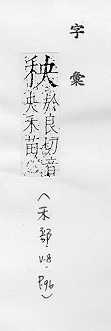 字彙
秧
於良切音
央禾苗
(禾部·V.8·P.96)